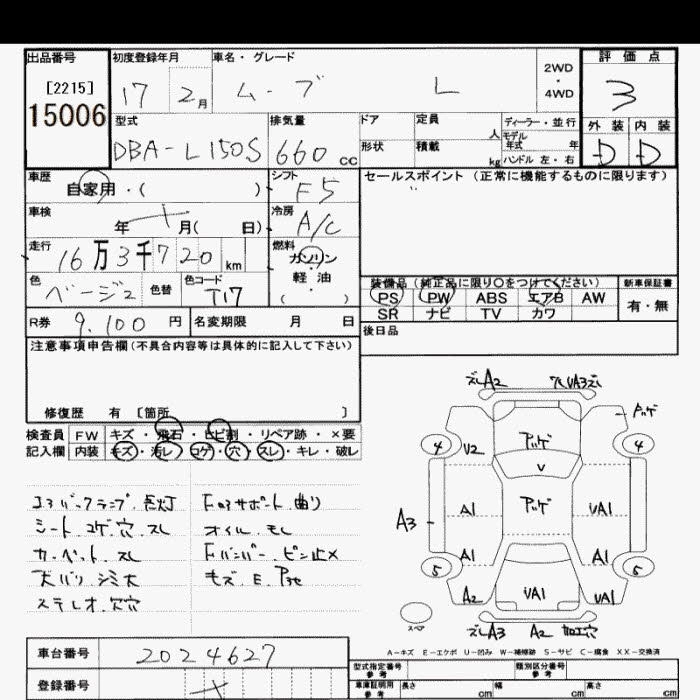 出品番号 初度登録年月 車名・グレード 評価点
[2215] 17 2月 ムーブ L 2WD・4WD 3
15006
型式 排気量 ドア 定員 人 ディーラー・並行 外装 内装
DBA-L150S 660cc 形状 積載 kg モデル年式 年 ハンドル 左・右 D D
車歴 自家用・( ) シフト F5 セールスポイント(正常に機能するものに限ります)
車検 年 月( 日) 冷房 A/C
走行 16万3千720km 燃料 ガソリン
軽油
( ・ )
色 ベージュ 色替 色コード T17
装備品(純正品に限り○をつけてください) 新車保証書
PS PW ABS エアB AW 有・無
SR ナビ TV カワ
R券 9,100円 名変期限 月 日 後日品
注意事項申告欄(不具合内容等は具体的に記入して下さい)
修復歴 有 [箇所 ]
検査員 FW キズ・飛石・ヒビ割・リペア跡・×要
記入欄 内装 キズ・汚レ・コゲ・穴・スレ・キレ・破レ
シート コゲ 穴 スレ
カーペット スレ
天バリ シミ大
ステレオ穴
Fロアサポート 曲り
オイル モレ
Fバンパー ピン止メ
A2
4 V2 V 4
A3 A1 VA1
A1 A1
5 A2 VA1 VA1 5
スペア A3 A2 加工穴
A-キズ E-エクボ U-凹み W-補修跡 S-サビ C-腐食 XX-交換済
車台番号 2024627
登録番号
型式指定番号 参考 類別区分番号 参考
車庫証明用 参考 長さ cm 幅 cm 高さ cm